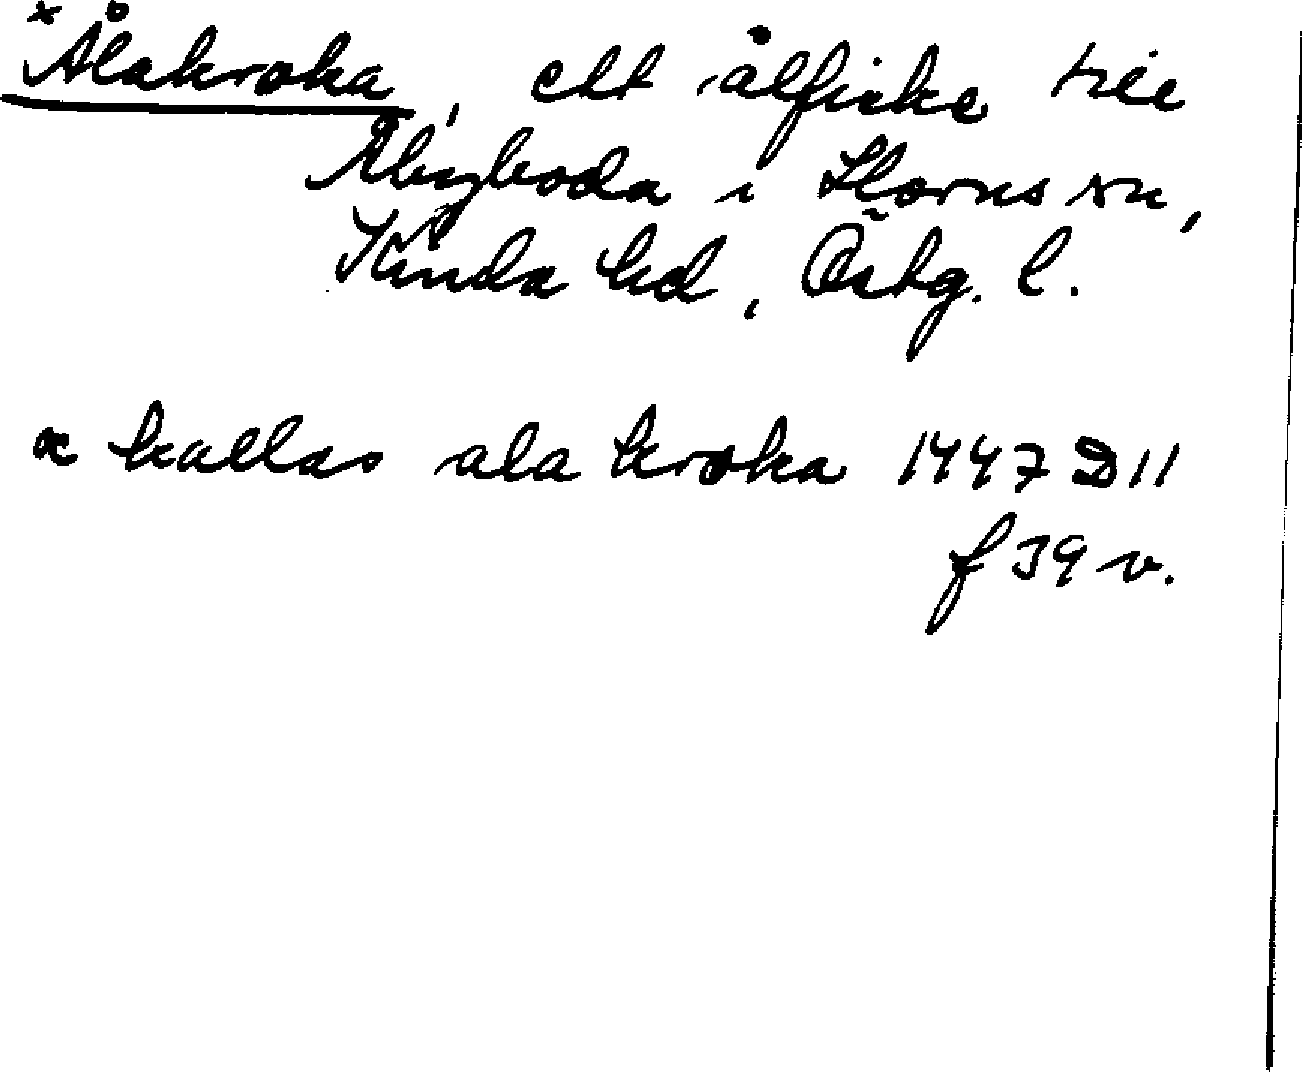 *Ålakroka, ett ålfiske till
Åbyboda i Horns sn,
Kinda hd, Östg. l.
x kallas ala kroka 1447 D 11
f 39 v.